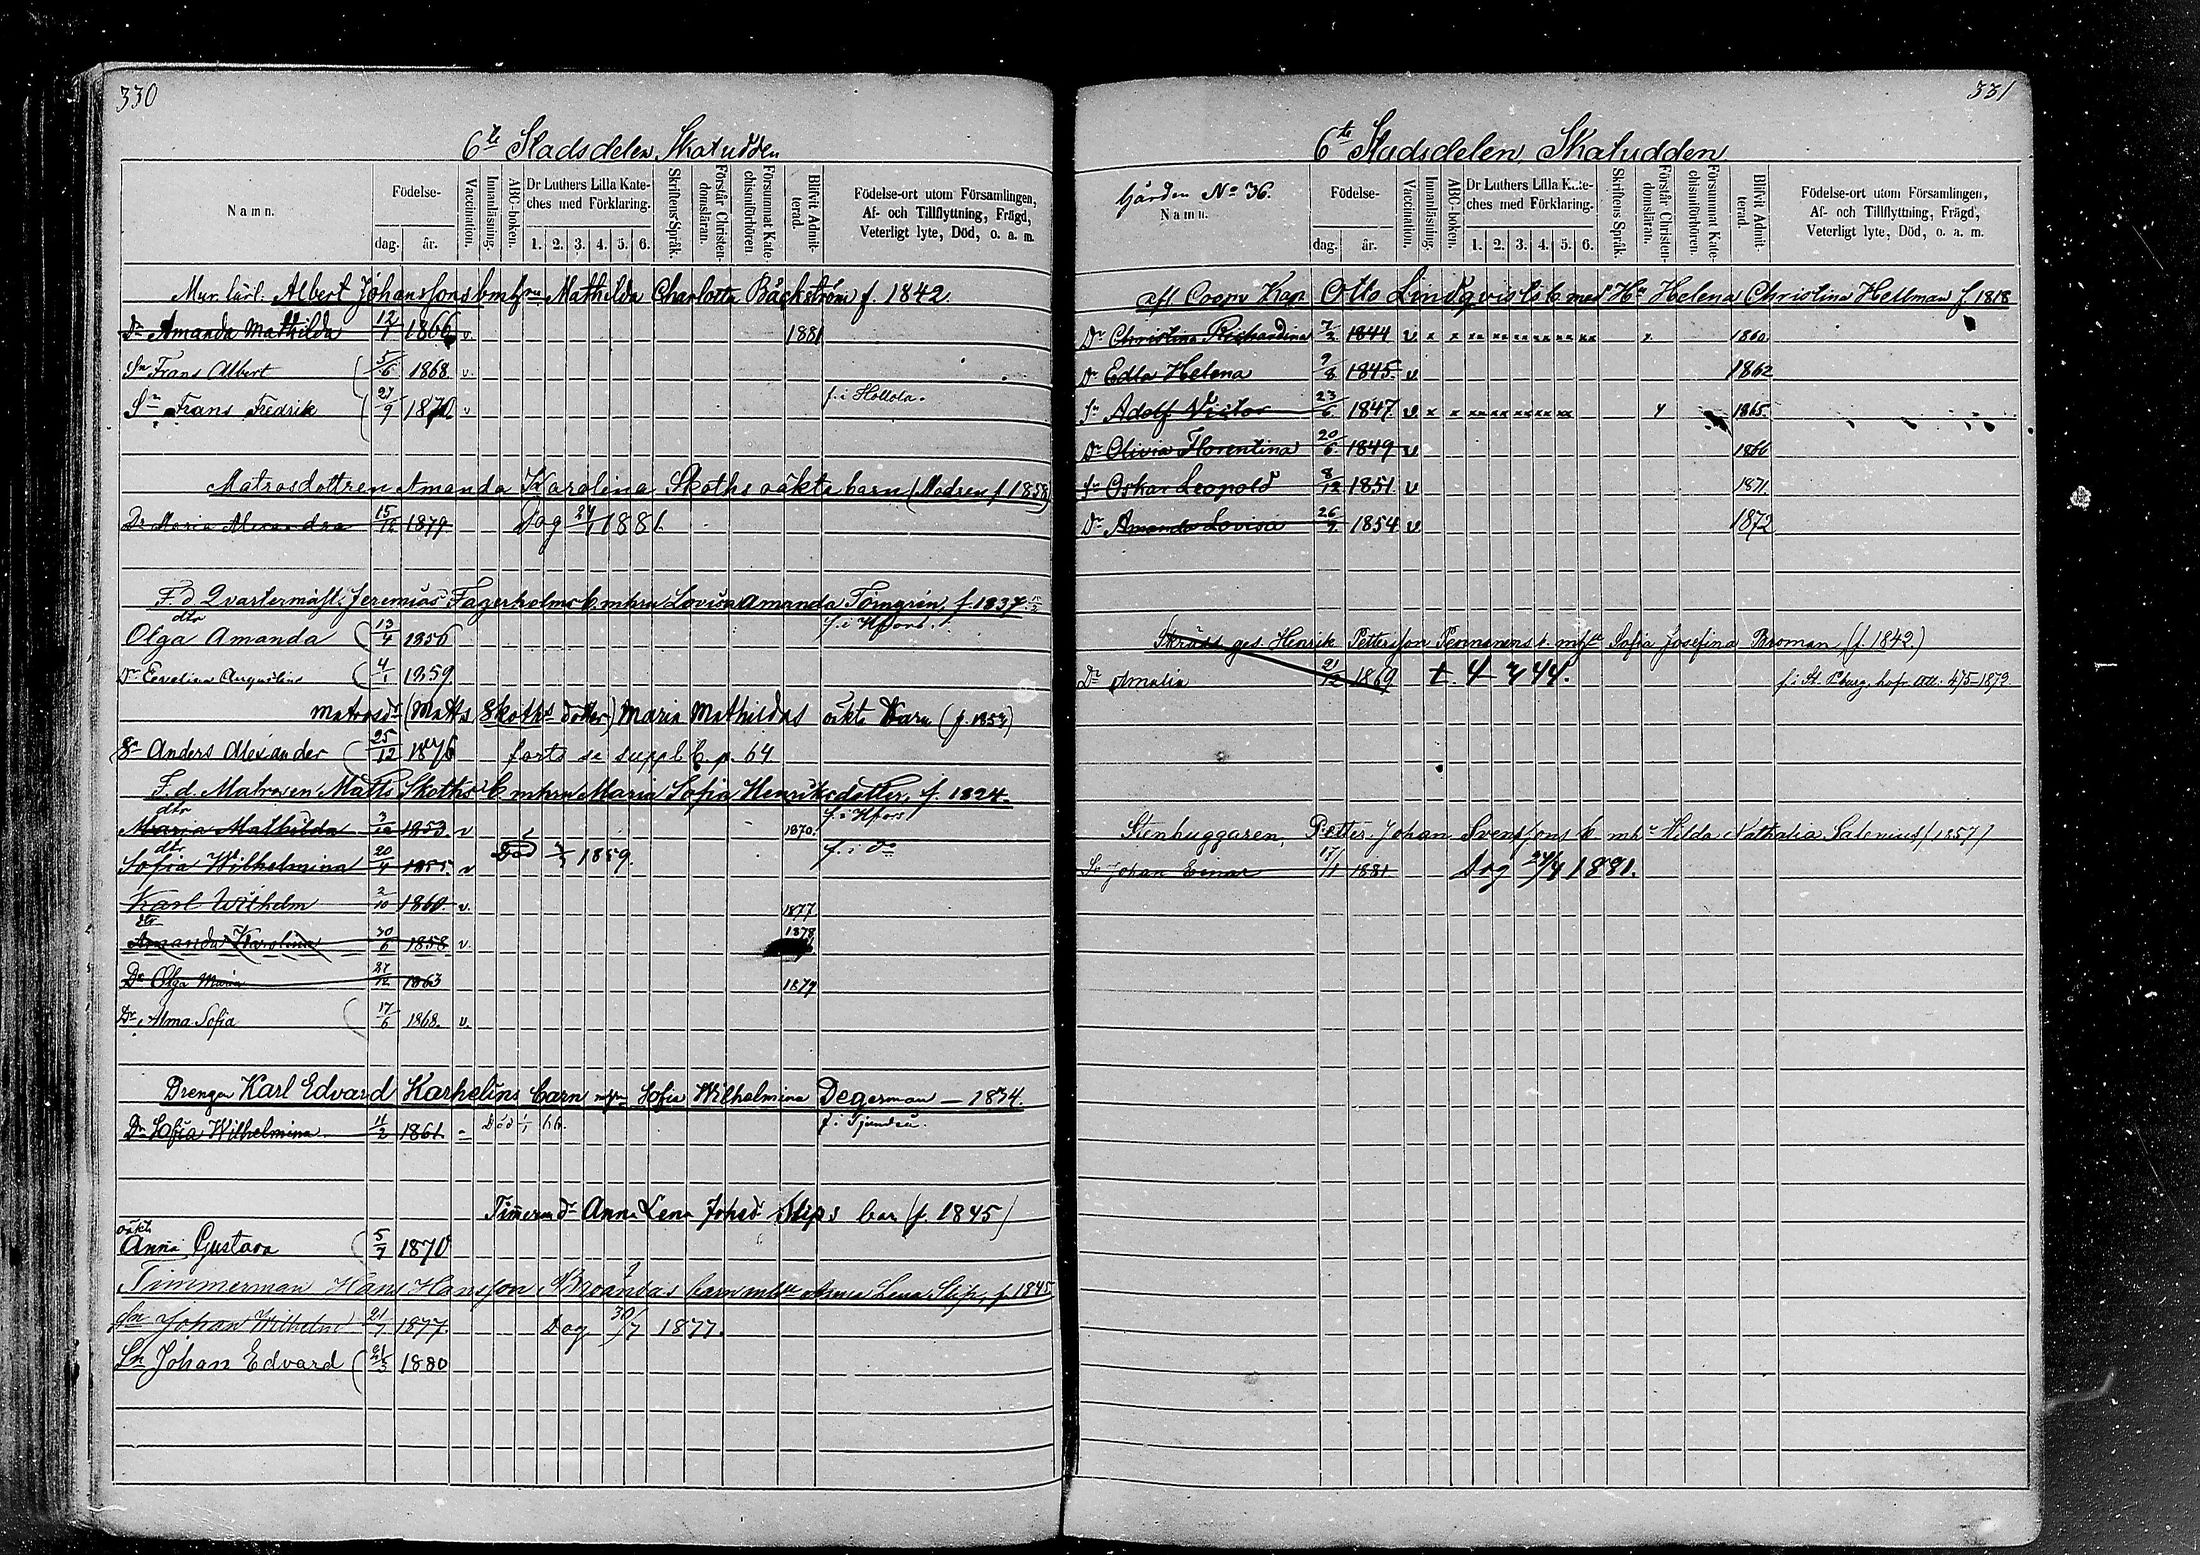 330
6te Stadsdelen Skatudden
Namn.
Födelse-
dag. år.
Vaccination.
Innanläsning.
ABC-boken.
Dr Luthers Lilla Kate-
ches med Förklaring.
1. 2. 3. 4. 5. 6.
Skriftens Språk.
Förstår Christen-
domsläran.
Försummat Kate-
chismiförhören
Blifvit Admit-
terad.
Födelse-ort utom Församlingen,
Af- och Tillflyttning, Frägd,
Veterligt lyte, Död, o. a. m.
Mur. lärl. Albert Johanssons b m hu Mathilda Charlotta Bäckström f. 1842.
Dr Amanda Mathilda 12/7 1866 v. 1881
Sn Frans Albert 5/6 1868 v.
Sn Frans Fredrik 27/9 1870 v f. i Hollola.
Matrosdottren Amanda Karolina Skoths oäkta barn (Modren f. 1858)
Dr Maria Alexandra 15/12 1879 Dog 24/1 1881.
F. d. Qvartermäst. Jeremias Fagerholms b. m hru Lovisa Amanda Törngrén, f. 1837.
dtr
Olga Amanda 13/4 1856 f. i Hfors.
Dr Evelina Augustina 4/1 1859
Matrosdr (Matts Skoths dotter) Maria Mathildas oäkta barn (f. 1853)
Sn Anders Alexander 25/12 1876 forts se suppl b. p. 64
F. d. Matrosen Matts Skoths b m hru Maria Sofia Henriksdotter, f. 1824.
dtr
Maria Mathilda 3/12 1853. v 1870. f. i Hfors
dtr
Sofia Wilhelmina 20/4 1855. v Död 1859. f. i do
Karl Wilhelm 2/10 1860. v. 1877
dtr
Amanda Karolina 30/6 1858 v 1878
Dr Olga Maria 27/12 1863 1879
Dr Alma Sofia 17/6 1868. v.
Drengen Karl Edvard Karhelins barn Sofia Wilhelmina Degerman — 1834.
Dr Sofia Wilhelmina 11/2 1861 Död 1/1 66. f. i Tjundeå.
Timermd Anna Lena Johsd Slips bar (f. 1845)
oäkta
Anna Gustava 5/7 1870
Timmerman Hans Hansson Broändas barn Anna Lena Slip, f. 1845
Sn Johan Wilhelm 21/7 1877. Dog 30/7 1877.
Sn Johan Edvard 21/3 1880
331
6te Stadsdelen Skatudden
Gården No 36.
Namn.
Födelse-
dag. år.
Vaccination.
Innanläsning.
ABC-boken.
Dr Luthers Lilla Kate-
ches med Förklaring.
1. 2. 3. 4. 5. 6.
Skriftens Språk.
Förstår Christen-
domsläran.
Försummat Kate-
chismiförhören.
Blifvit Admit-
terad.
Födelse-ort utom Församlingen,
Af- och Tillflyttning, Frägd,
Veterligt lyte, Död, o. a. m.
afl. Coopv. Kap Otto Lindqvists b med Hu Helena Christina Hellman f. 1818
Dr Christina Richardina 7/2 1844 v x x xx xx xx xx xx xx x 1860
Dr Edla Helena 9/8 1845. v 1862
Sn Adolf Victor 23/6 1847 v x x xx xx xx xx 1865
Dr Olivia Florentina 20/6 1849 v 1866
Sn Oskar Leopold 8/12 1851 v 1871
Dr Amanda Lovisa 26/9 1854 v 1872
ges. Henrik Pettersson Pennanens b. Sofia Josefina Broman, (f. 1842.)
Dr Amalia 21/12 1869 f. i St. Pburg, 475-1873
Stenhuggaren, Petter Johan Svenssons b mhu Hilda Nathalia Salenius (1857)
Sn Johan Einar 17/1 1881 Dog 24/4 1881.